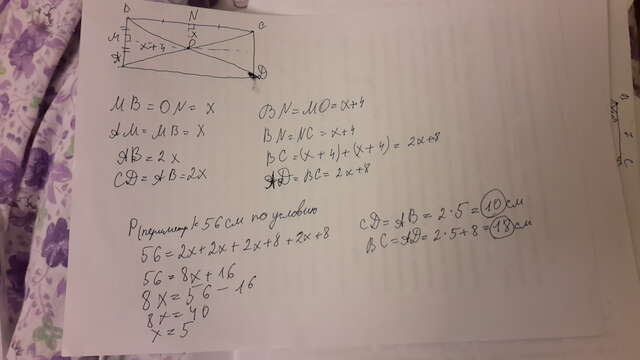 B
N
C
M
x
x+4
O
A
D
MB = ON = x
AM = MB = x
AB = 2x
CD = AB = 2x
BN = MO = x+4
BN = NC = x+4
BC = (x+4)+(x+4) = 2x+8
AD = BC = 2x+8
P(периметр) = 56 см по условию
56 = 2x+2x+2x+8+2x+8
56 = 8x+16
8x = 56-16
8x = 40
x = 5
CD = AB = 2·5 = 10 см
BC = AD = 2·5+8 = 18 см